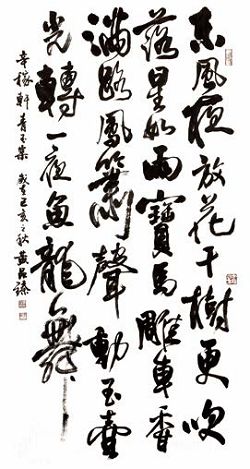 東風夜放花千樹更吹
落星如雨寶馬雕車香
滿路鳳簫聲動玉壺
光轉一夜魚龍舞
辛稼軒青玉案 歲在己亥之秋 黃